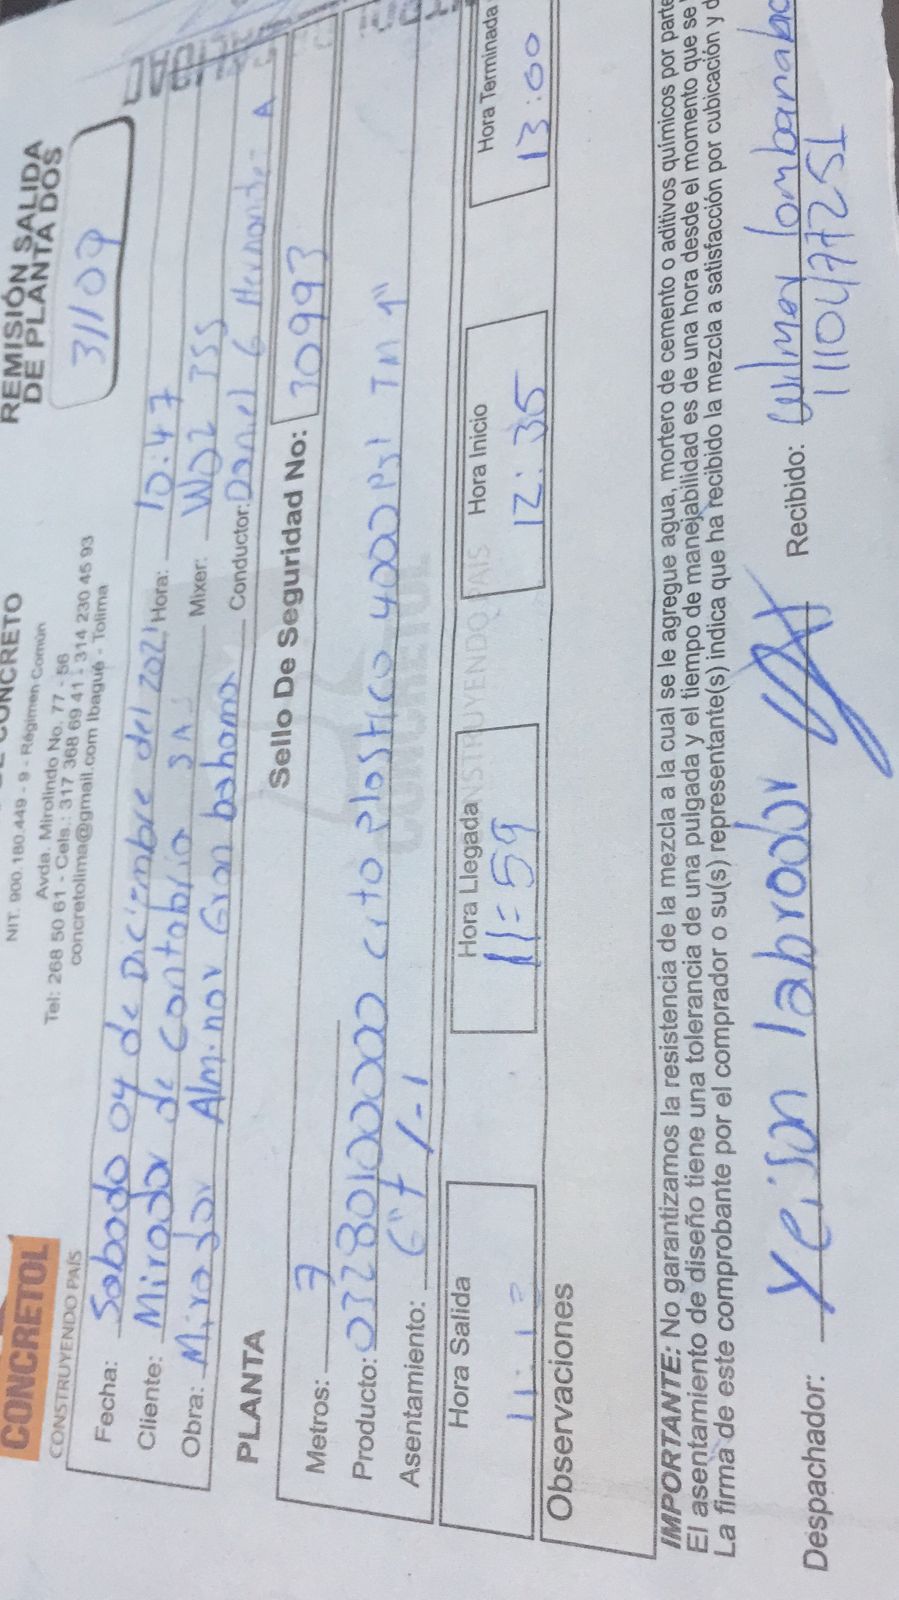 CONCRETOL
CONSTRUYENDO PAÍS
CONCRETO
NIT. 900.180.449 - 9 - Régimen Común
Avda. Mirolindo No. 77 - 56
Tel: 268 50 61 - Cels.: 317 368 69 41 - 314 230 45 93
concretolima@gmail.com Ibagué - Tolima
REMISIÓN SALIDA
DE PLANTA DOS
31109
CALIDAD
Fecha: Sabado 04 de Diciembre del 2021 Hora: 10:47
Cliente: Mirador de Contabria SAS Mixer: WD2 355
Obra: Mirador Alminar Gran bahama Conductor: Daniel G Hernandez A
PLANTA
Sello De Seguridad No: 30993
Metros: 7
Producto: 0328010000 Crto plastico 4000 PSI TM 1"
Asentamiento: 6" +/-1
CONCRETOL
CONSTRUYENDO PAÍS
Hora Salida Hora Llegada Hora Inicio Hora Terminada
11:12 11:59 12:35 13:00
Observaciones
IMPORTANTE: No garantizamos la resistencia de la mezcla a la cual se le agregue agua, mortero de cemento o aditivos químicos por parte
El asentamiento de diseño tiene una tolerancia de una pulgada y el tiempo de manejabilidad es de una hora desde el momento que se
La firma de este comprobante por el comprador o su(s) representante(s) indica que ha recibido la mezcla a satisfacción por cubicación y
Despachador: Yeison labrador Recibido: Wilmer lombana
1110477251